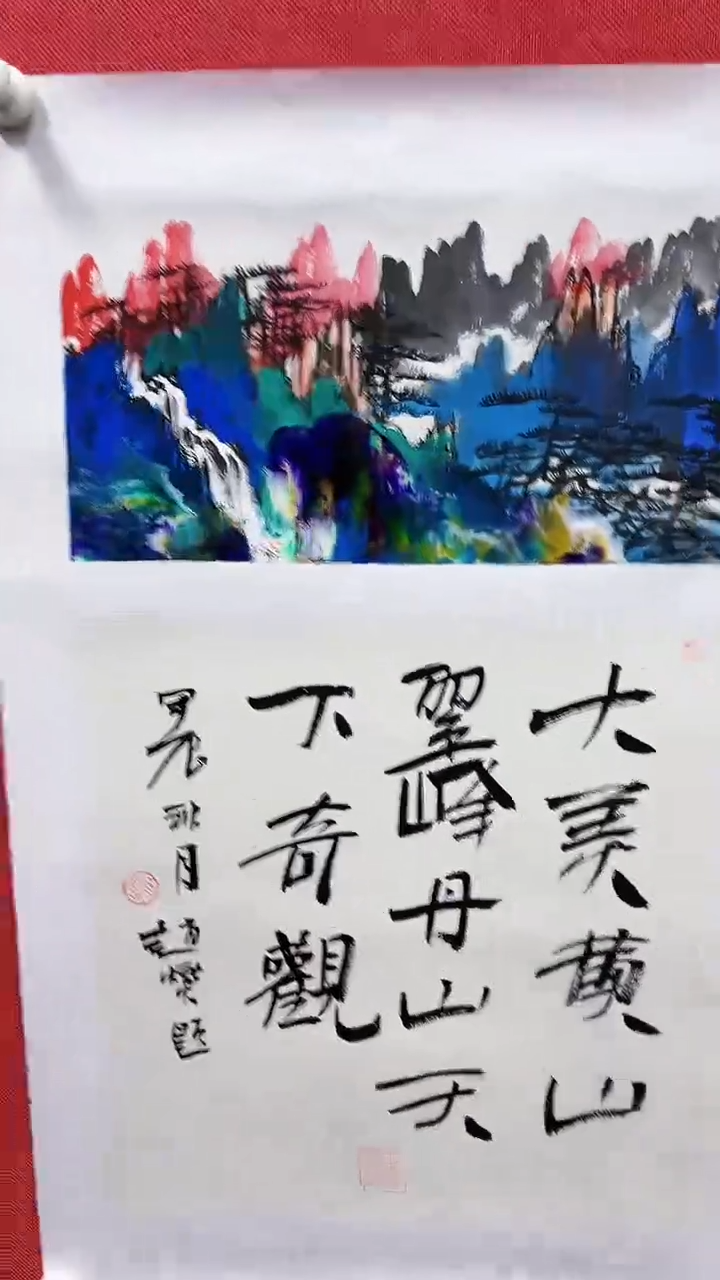 大美黄山
翠峰丹山天
下奇觀
月
題